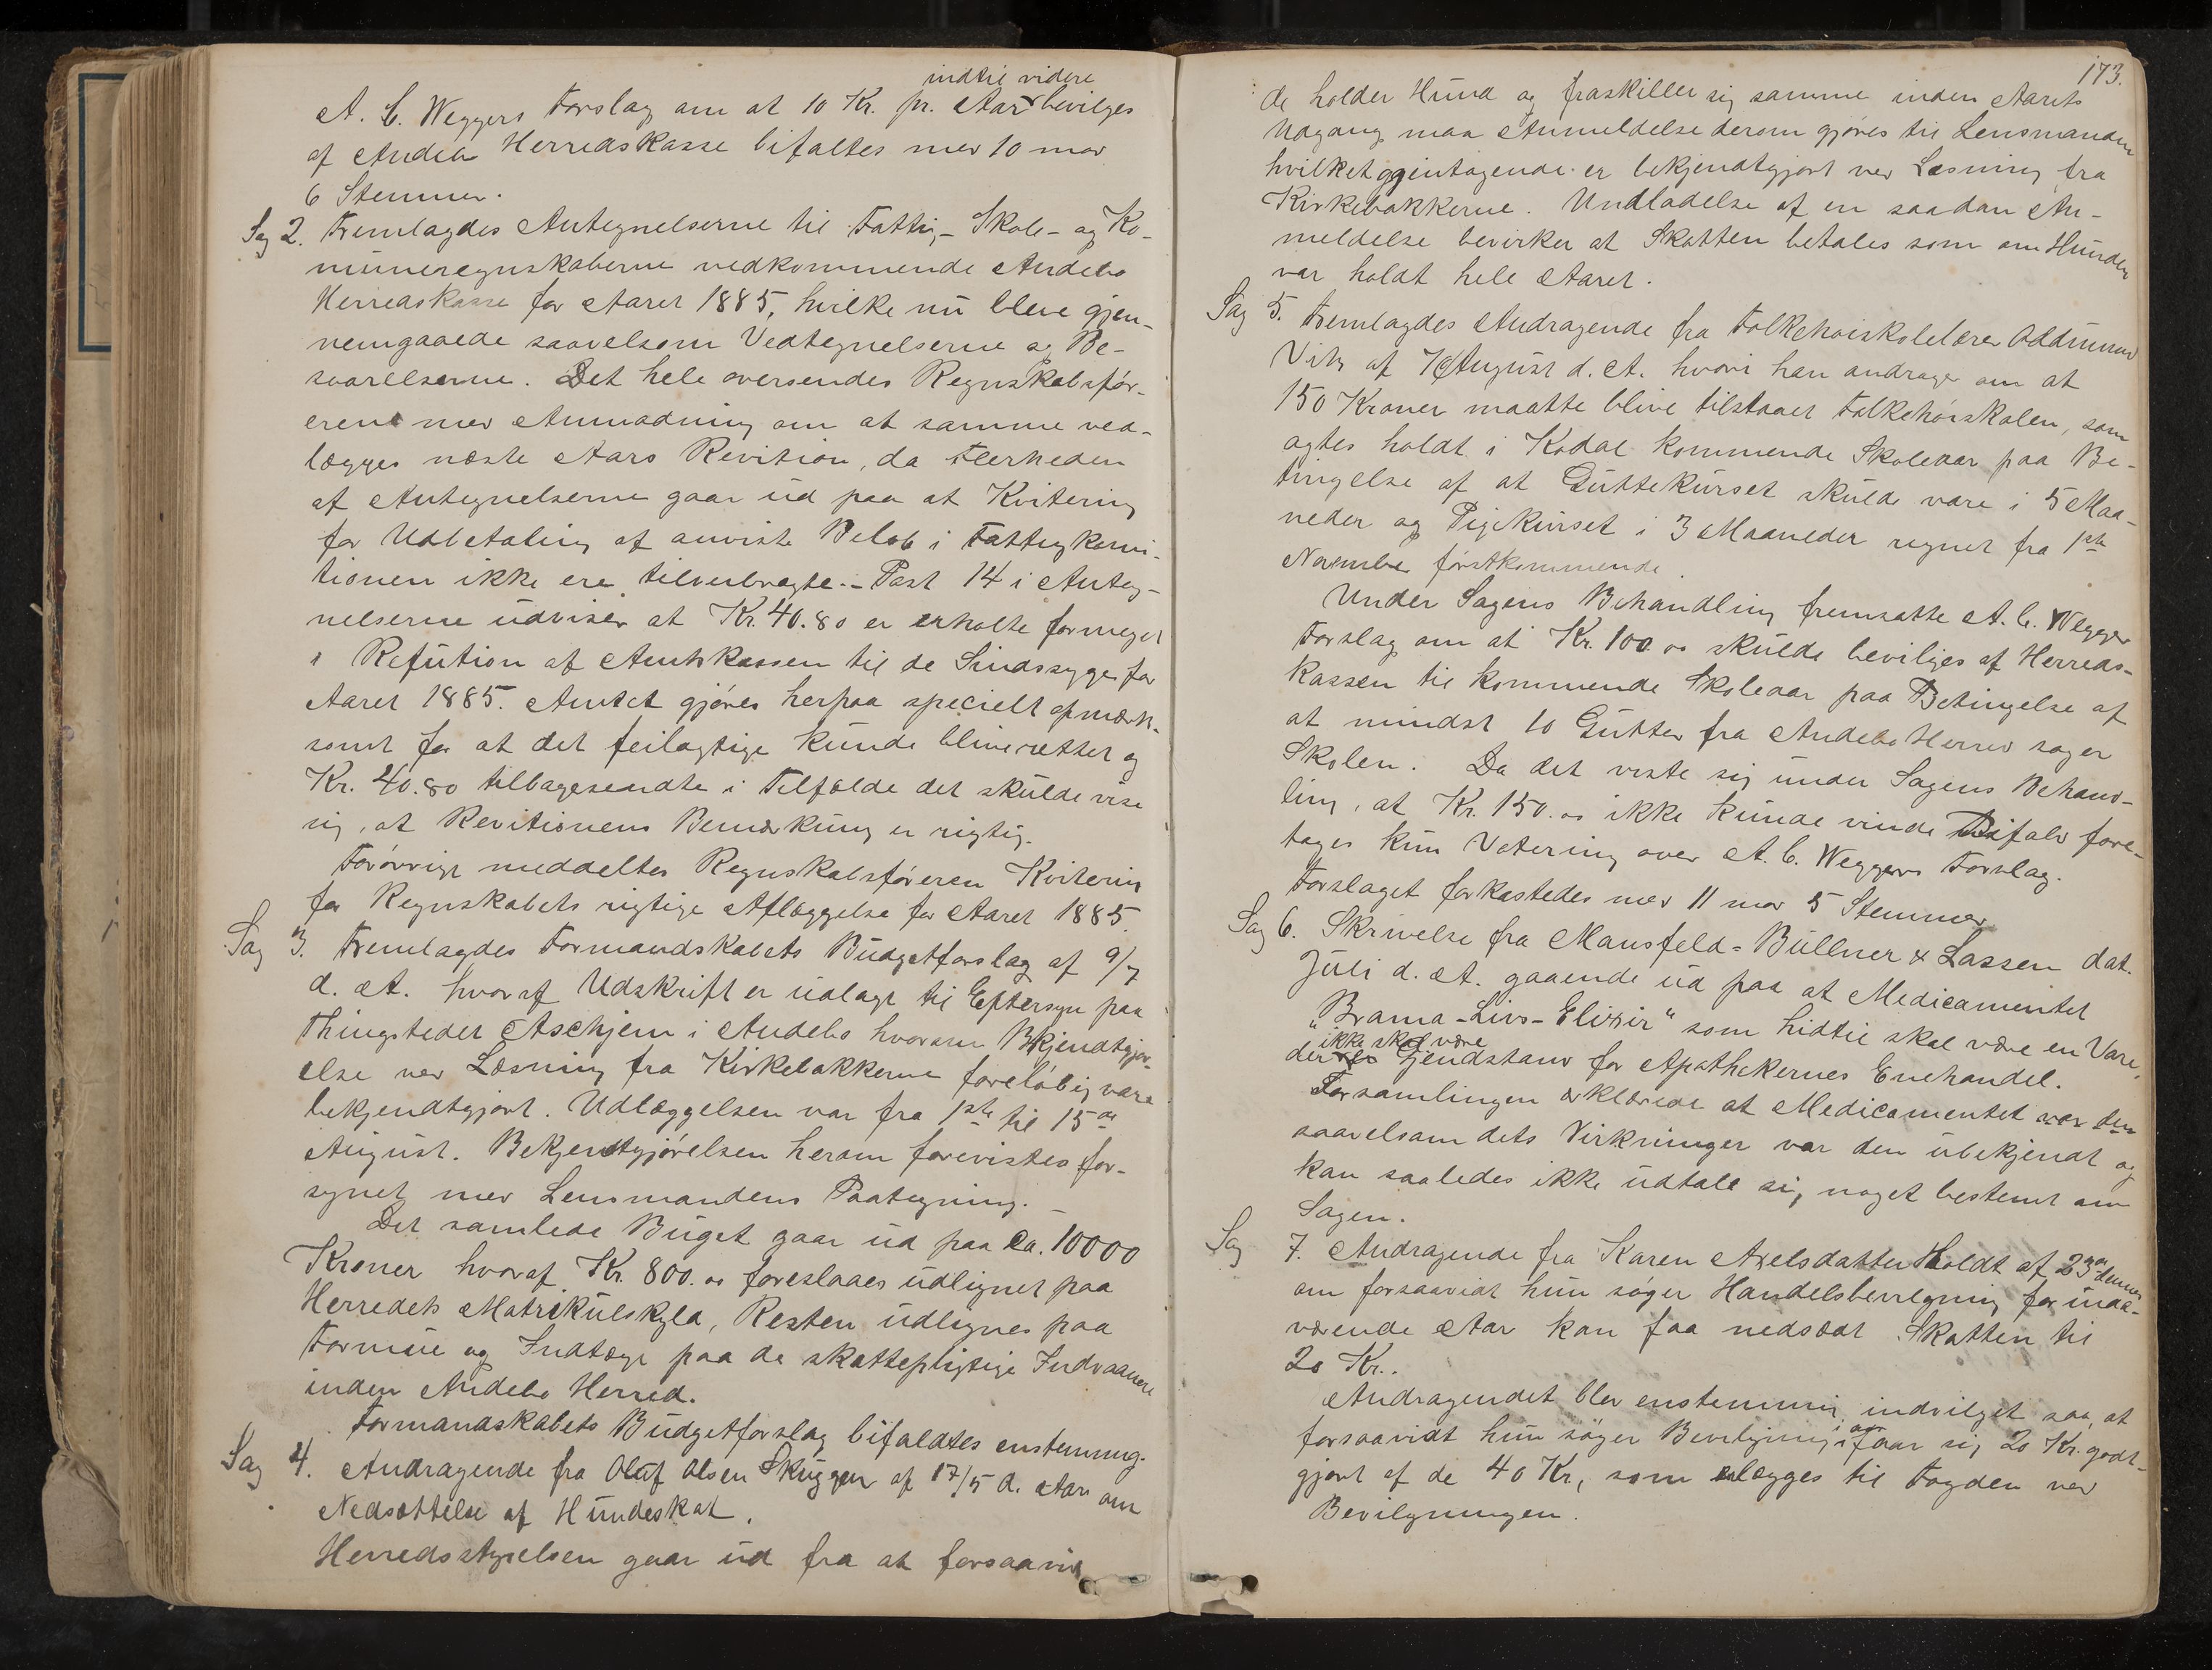 indtil videre
A. C. Weggers Forslag om at 10 Kr. pr. Aar bevilges
af Andebu Herredskasse bifaltes med 10 mod
6 Stemmer.
Sag 2. Fremlagdes Antegnelserne til Fattig- Skole- og Ko-
muneregnskaberne vedkommende Andebu
Herredskasse for Aaret 1885, hvilke nu bleve gjen-
nemgaaede saavelsom Vedtegnelserne og Be-
svarelserne. Det hele oversendes Regnskabsför-
eren med Anmodning om at samme ved-
lægges næste Aars Revition, da Flerheden
af Antegnelserne gaar ud paa at Kvitering
for Udbetaling af anviste Belöb i Fattigkomi-
tionen ikke ere tilveibragte. - Post 14 i Anteg-
nelserne udviser at Kr. 40.80 er erholte formeget
i Refution af Amtskassen til de Sindssyge for
Aaret 1885. Amtet gjöres herpaa specielt opmærk-
somt for at det feilagtige kunde blive rettet og
Kr. 40.80 tilbagesendte i Tilfælde det skulde vise
sig, at Revitionens Bemærkning er rigtig.
Forövrigt meddeltes Regnskabsföreren Kvitering
for Regnskabets rigtige Aflæggelse for Aaret 1885.
Sag 3. Fremlagdes Formandskabets Budgetforslag af 9/7
d. A. hvoraf Udskrift er udlagt til Eftersyn paa
Thingstedet Aschjem i Andebo hvorom Bekjendtgjör-
else ved Læsning fra Kirkebakkerne foreløbig være
bekjendtgjort. Udlæggelsen var fra 1ste til 15de
August. Bekjendtgjörelsen herom forevistes for-
synet med Lensmandens Paategning.
Det samlede Buget gaar ud paa ca. 10000
Kroner hvoraf Kr. 800.00 foreslaaes udlignet paa
Herredets Matrikulskyld, Resten udlignes paa
Formue og Indtægt paa de skattepligtige Indvaanere
inden Andebo Herred.
Formandskabets Budgetforslag bifaldtes enstemmig.
Sag 4. Andragende fra Oluf Olsen Skuggen af 17/5 d. Aar om
Nedsættelse af Hundeskat.
Herredsstyrelsen gaar ud fra at forsaavidt
173.
de holder Hund og fraskiller sig samme inden Aarets
Udgang maa Anmeldelse derom gjöres til Lensmanden
hvilket gjentagende er bekjendtgjort ved Læsning fra
Kirkebakkerne. Undladelse af en saadan An-
meldelse bevirker at Skatten betales som om Hunden
var holdt hele Aaret.
Sag 5. Fremlagdes Andragende fra Folkehöiskolelærer Oddmund
Vik af 7 August d. A. hvori han andrager om at
150 Kroner maatte blive tilstaaet Folkehöiskolen, som
agtes holdt i Kodal kommende Skoleaar paa Be-
tingelse af at Guttekurset skulde vare i 5 Maa-
neder og Pigekurset i 3 Maaneder regnet fra 1ste
November förstkommende.
Under Sagens Behandling fremsatte A. C. Wegger
Forslag om at Kr. 100.00 skulde beviliges af Herreds-
kassen til kommende Skoleaar paa Betingelse af
at mindst 10 Gutter fra Andebo Herred søger
Skolen. Da det viste sig under Sagens Behand-
ling, at Kr. 150.00 ikke kunde vinde Bifald fore-
tages kun Votering over A. C. Weggers Forslag.
Forslaget forkastedes med 11 mod 5 Stemmer.
Sag 6. Skrivelse fra Mansfeld-Büllner & Lassen dat.
Juli d. A. gaaende ud paa at Medicamentet
"Brama-Livs-Elixir" som hidtil skal være en Vare,
ikke skal være
der Gjendstand for Apothekernes Enehandel.
Forsamlingen erklærede at Medicamentet var den
saavelsom dets Virkninger var den ubekjendt og
kan saaledes ikke udtale sig noget bestemt om
Sagen.
Sag 7. Andragende fra Karen Axelsdatter Holdt af 23de dennes
om forsaavidt hun söger Handelsbevilgning for inde-
værende Aar kan faa nedsædt Skatten til
20 Kr..
Andragendet blev enstemmig indvilget saa, at
forsaavidt hun söger Bevilgning i aar faar sig 20 Kr. godt-
gjort af de 40 Kr., som erlægges til Fogden ved
Bevilgningen.